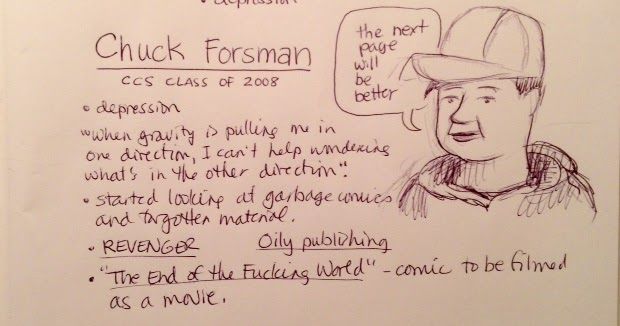 • depression
Chuck Forsman
CCS CLASS OF 2008
• depression
"When gravity is pulling me in
one direction, I can't help wondering
what's in the other direction".
• started looking at garbage comics
and forgotten material.
• REVENGER Oily publishing
• "The End of the Fucking World" - comic to be filmed
as a movie.
the next
page
will
be
better